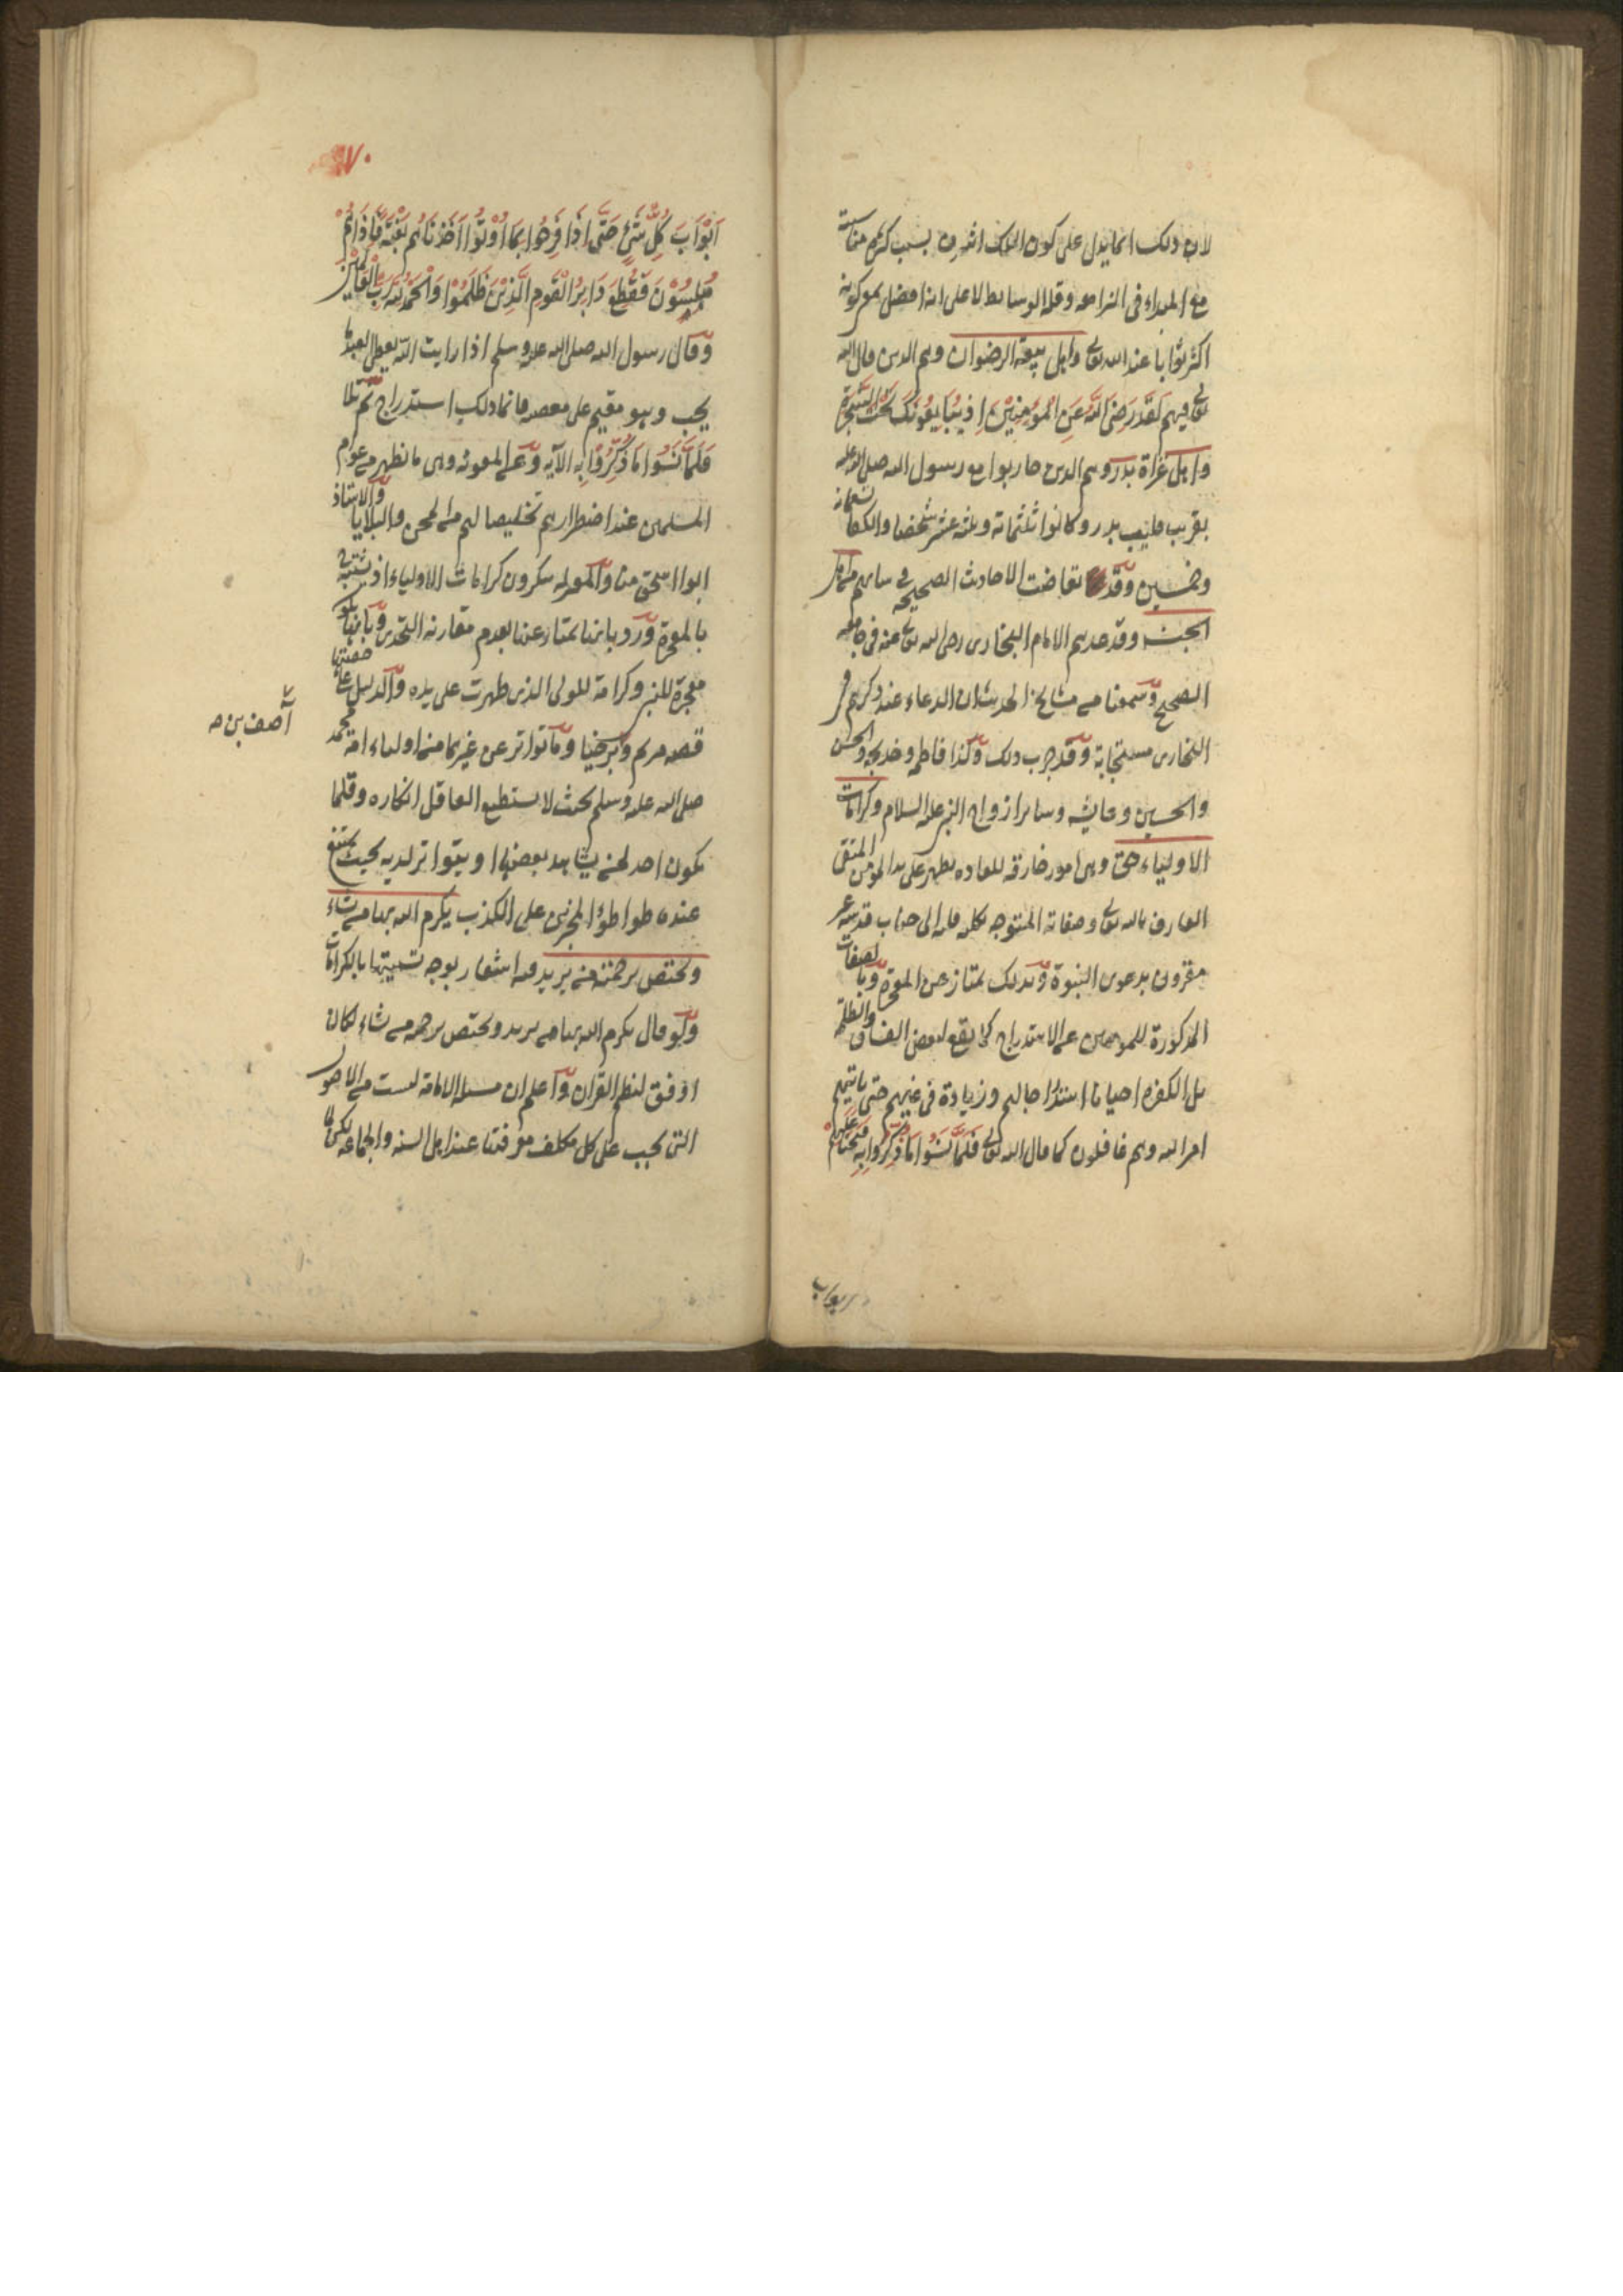 لان ذلك انما يدل على كون الملك اشرف بسبب كثرة مناسبته
مع المبداء فى النزاهه وقلة الوسايط لا على انه افضل بمعى كونه
اكثر ثوابا عند الله تعالى واهل بيعة الرضوان وهم الذين قال الله
تعالى فيهم لَقَدْ رَضِىَ اللّٰهُ عَنِ الْمُؤْمِنِيْنَ اِذْ يُبَايِعُوْنَكَ تَحْتَ الشَّجَرَةِ
واهل غزاة بدر وهم الذين حاربوا مع رسول الله صلى الله عليه
بقريب قليب بدر وكانوا ثلثمائة وثلثة عشر شخصا والكفار تسعمائة
وخمسين وقد تعاضت الاحاديث الصحيحه فى انهم من اهل
الجنة وقد عدهم الامام البخارى رضى الله تعالى عنه فى جامعه
الصحيح وسمعنا من مشايخ الحديث ان الدعاء عند ذكرهم فى
البخارى مستجابة وقد جرب ذلك وكذا فاطمه وخديجه والحسن
والحسين وعايشه وساير ازواج النبى عليه السلام وكرامات
الاولياء حق وهى امور خارقه للعاده يظهر على يد المؤمن المتقى
العارف بالله تعالى وصفاته المتوجه بكليه قلبه الى جناب قدسه غير
مقرون بدعوى النبوة وبذلك يمتاز عن المعجزة وبالصفات
المذكورة للمومن عن الاستدراج كما يقع لبعض الفساق والظلمة
بل الكفرة احيانا استدراجا لهم وزيادة فى غيهم حتى ياتيهم
امر الله وهم غافلون كما قال الله تعالى فَلَمَّا نَسُوْا مَا ذُكِّرُوا بِهِ فَتَحْنَا عَلَيْهِمْ
ابواب
٧٠
اَبْوَابَ كُلِّ شَىْءٍ حَتّٰى اِذَا فَرِحُوْا بِمَا اُوْتُوْا اَخَذْنَاهُمْ بَغْتَةً فَاِذَا هُمْ
مُبْلِسُوْنَ فَقُطِعَ دَابِرُ الْقَوْمِ الَّذِيْنَ ظَلَمُوْا وَالْحَمْدُ لِلّٰهِ رَبِّ الْعَالَمِيْنَ
وقال رسول الله صلى الله عليه وسلم اذا رايت الله يعطى العبد ما
يحب وهو مقيم على معصيه فانما ذلك استدراج ثم تلا
فَلَمَّا نَسُوْا مَا ذُكِّرُوْا بِهِ الآيه وعن المعونه وهى ما تظهر من عوام
المسلمين عند اضطرارهم تخليصا لهم من المحن والبلايا والاستاذ
ابوا اسحق منا والمعتزله ينكرون كرامات الاولياء اذ يشتبه
بالمعجزة ورد بانها يمتاز عنها بعدم مقارنه التحدى وبانها يكون
معجزة للنبى وكرامة للولى الذى ظهرت على يده والدليل على حقيتها
قصه مريم وبرخيا وما تواتر عن غيرهما من اولياء امة محمد
صلى الله عليه وسلم بحيث لا يستطيع العاقل انكاره وقلما
يكون احد لم يشاهد بعضها او يتواتر لديه بحيث يمتنع
عنده تواطؤ المخبرين على الكذب يكرم الله بها من يشاء
ويختص برحمته من يريد فيه اشعار بوجه تسميتها بالكرامات
ولو قال يكرم الله بها من يريد ويختص برحمته من يشاء لكان
اوفق لنظم القران واعلم ان مسئله الامامة ليست من الاصول
التى يجب على كل مكلف معرفتها عند اهل السنه والجماعه لكن لما
آصف بن صه